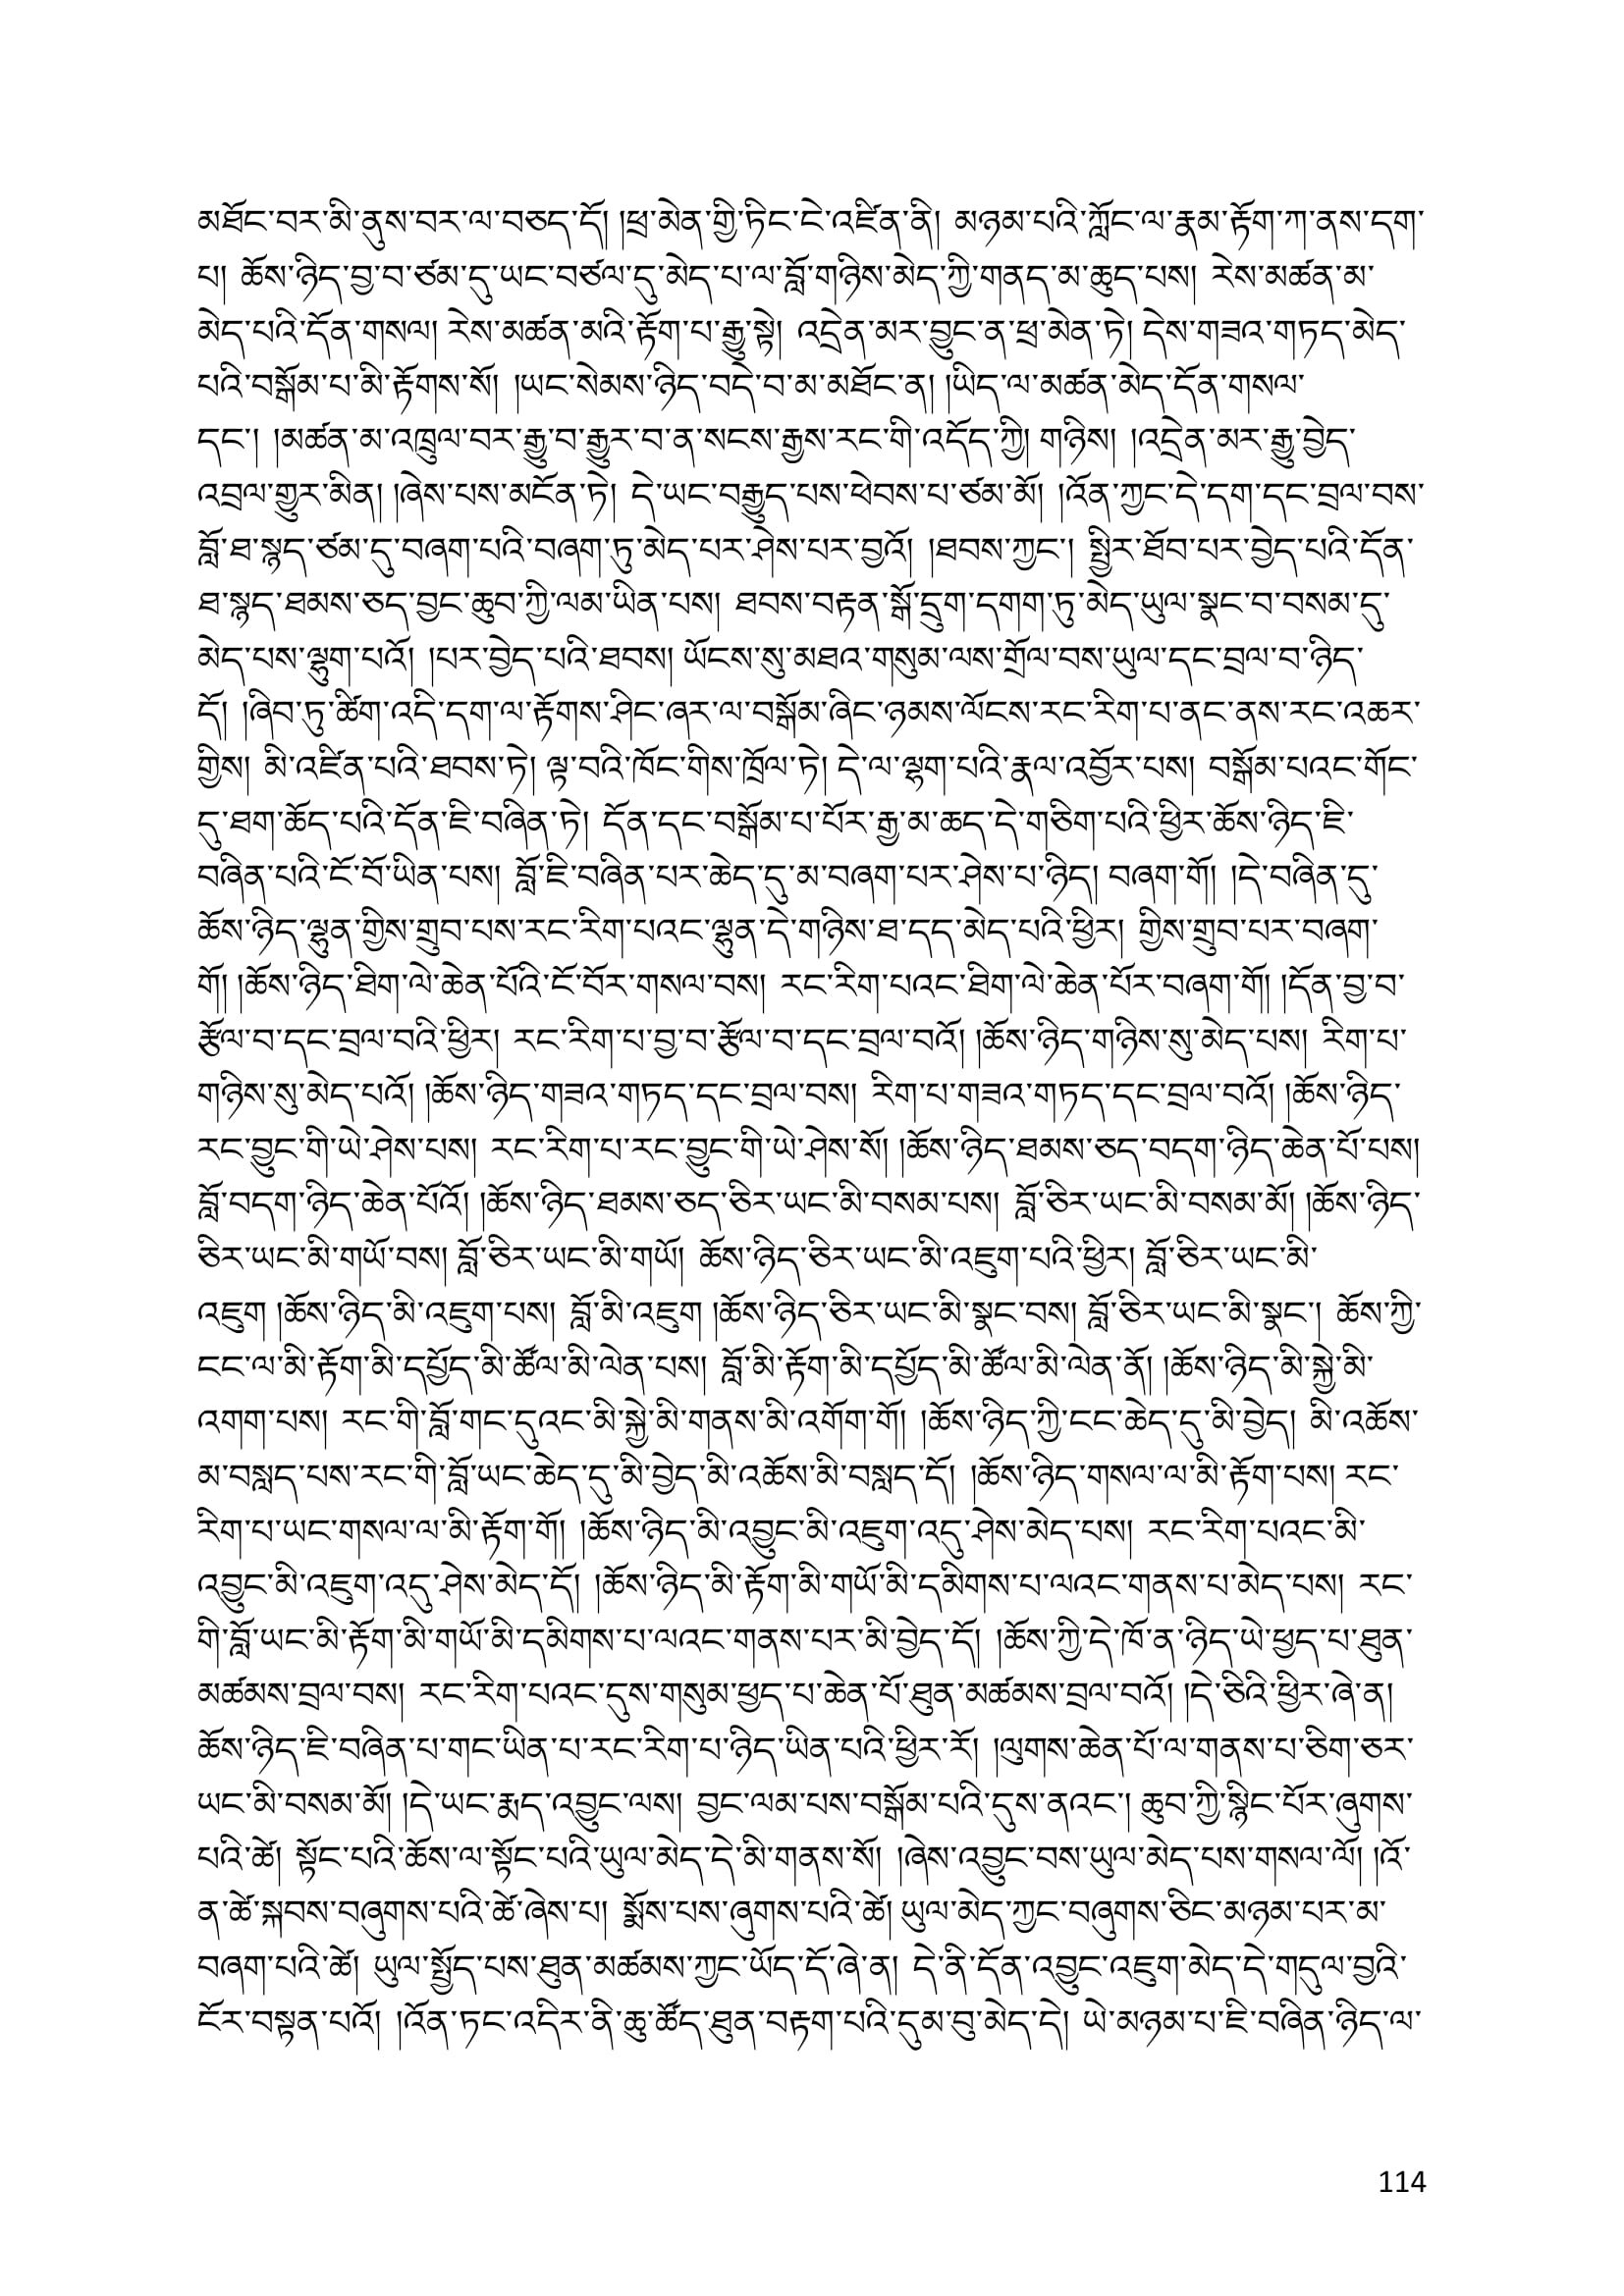 མཐོང་བར་མི་ནུས་བར་ལ་བཅད་དོ། །ཕྲ་མེན་གྱི་ཏིང་ངེ་འཛིན་ནི། མཉམ་པའི་ཀློང་ལ་རྣམ་རྟོག་ཀ་ནས་དག་
པ། ཆོས་ཉིད་བྱ་བ་ཙམ་དུ་ཡང་བཙལ་དུ་མེད་པ་ལ་བློ་གཉིས་མེད་ཀྱི་གནད་མ་ཆུད་པས། རེས་མཚན་མ་
མེད་པའི་དོན་གསལ། རེས་མཚན་མའི་རྟོག་པ་རྒྱུ་སྟེ། འདྲེན་མར་བྱུང་ན་ཕྲ་མེན་ཏེ། དེས་གཟའ་གཏད་མེད་
པའི་བསྒོམ་པ་མི་རྟོགས་སོ། །ཡང་སེམས་ཉིད་བདེ་བ་མ་མཐོང་ན། །ཡིད་ལ་མཚན་མེད་དོན་གསལ་
དང་། །མཚན་མ་འཁྲུལ་བར་རྒྱུ་བ་རྒྱུར་བ་ན་སངས་རྒྱས་རང་གི་འདོད་ཀྱི། གཉིས། །འདྲེན་མར་རྒྱུ་བྱེད་
འབྲལ་གྱུར་མིན། །ཞེས་པས་མངོན་ཏེ། དེ་ཡང་བརྒྱུད་པས་ཕེབས་པ་ཙམ་མོ། །འོན་ཀྱང་དེ་དག་དང་བྲལ་བས་
བློ་ཐ་སྙད་ཙམ་དུ་བཞག་པའི་བཞག་ཏུ་མེད་པར་ཤེས་པར་བྱའོ། །ཐབས་ཀྱང་། སྤྱིར་ཐོབ་པར་བྱེད་པའི་དོན་
ཐ་སྙད་ཐམས་ཅད་བྱང་ཆུབ་ཀྱི་ལམ་ཡིན་པས། ཐབས་བརྟན་སྒོ་དྲུག་དགག་ཏུ་མེད་ཡུལ་སྣང་བ་བསམ་དུ་
མེད་པས་ལྷུག་པའོ། །པར་བྱེད་པའི་ཐབས། ཡོངས་སུ་མཐའ་གསུམ་ལས་གྲོལ་བས་ཡུལ་དང་བྲལ་བ་ཉིད་
དོ། །ཞིབ་ཏུ་ཚིག་འདི་དག་ལ་རྟོགས་ཤིང་ཞར་ལ་བསྒོམ་ཞིང་ཉམས་ལོངས་རང་རིག་པ་ནང་ནས་རང་འཆར་
གྱིས། མི་འཛིན་པའི་ཐབས་ཏེ། ལྟ་བའི་ཁོང་གིས་ཁྲོལ་ཏེ། དེ་ལ་ལྷག་པའི་རྣལ་འབྱོར་པས། བསྒོམ་པའང་གོང་
དུ་ཐག་ཆོད་པའི་དོན་ཇི་བཞིན་ཏེ། དོན་དང་བསྒོམ་པ་པོར་རྒྱ་མ་ཆད་དེ་གཅིག་པའི་ཕྱིར་ཆོས་ཉིད་ཇི་
བཞིན་པའི་ངོ་བོ་ཡིན་པས། བློ་ཇི་བཞིན་པར་ཆེད་དུ་མ་བཞག་པར་ཤེས་པ་ཉིད། བཞག་གོ། །དེ་བཞིན་དུ་
ཆོས་ཉིད་ལྷུན་གྱིས་གྲུབ་པས་རང་རིག་པའང་ལྷུན་དེ་གཉིས་ཐ་དད་མེད་པའི་ཕྱིར། གྱིས་གྲུབ་པར་བཞག་
གོ། །ཆོས་ཉིད་ཐིག་ལེ་ཆེན་པོའི་ངོ་བོར་གསལ་བས། རང་རིག་པའང་ཐིག་ལེ་ཆེན་པོར་བཞག་གོ། །དོན་བྱ་བ་
རྩོལ་བ་དང་བྲལ་བའི་ཕྱིར། རང་རིག་པ་བྱ་བ་རྩོལ་བ་དང་བྲལ་བའོ། །ཆོས་ཉིད་གཉིས་སུ་མེད་པས། རིག་པ་
གཉིས་སུ་མེད་པའོ། །ཆོས་ཉིད་གཟའ་གཏད་དང་བྲལ་བས། རིག་པ་གཟའ་གཏད་དང་བྲལ་བའོ། །ཆོས་ཉིད་
རང་བྱུང་གི་ཡེ་ཤེས་པས། རང་རིག་པ་རང་བྱུང་གི་ཡེ་ཤེས་སོ། །ཆོས་ཉིད་ཐམས་ཅད་བདག་ཉིད་ཆེན་པོ་པས།
བློ་བདག་ཉིད་ཆེན་པོའོ། །ཆོས་ཉིད་ཐམས་ཅད་ཅིར་ཡང་མི་བསམ་པས། བློ་ཅིར་ཡང་མི་བསམ་མོ། །ཆོས་ཉིད་
ཅིར་ཡང་མི་གཡོ་བས། བློ་ཅིར་ཡང་མི་གཡོ། ཆོས་ཉིད་ཅིར་ཡང་མི་འཇུག་པའི་ཕྱིར། བློ་ཅིར་ཡང་མི་
འཇུག །ཆོས་ཉིད་མི་འཇུག་པས། བློ་མི་འཇུག །ཆོས་ཉིད་ཅིར་ཡང་མི་སྣང་བས། བློ་ཅིར་ཡང་མི་སྣང་། ཆོས་ཀྱི་
ངང་ལ་མི་རྟོག་མི་དཔྱོད་མི་ཚོལ་མི་ལེན་པས། བློ་མི་རྟོག་མི་དཔྱོད་མི་ཚོལ་མི་ལེན་ནོ། །ཆོས་ཉིད་མི་སྐྱེ་མི་
འགག་པས། རང་གི་བློ་གང་དུའང་མི་སྐྱེ་མི་གནས་མི་འགོག་གོ། །ཆོས་ཉིད་ཀྱི་ངང་ཆེད་དུ་མི་བྱེད། མི་འཆོས་
མ་བསླད་པས་རང་གི་བློ་ཡང་ཆེད་དུ་མི་བྱེད་མི་འཆོས་མི་བསླད་དོ། །ཆོས་ཉིད་གསལ་ལ་མི་རྟོག་པས། རང་
རིག་པ་ཡང་གསལ་ལ་མི་རྟོག་གོ། །ཆོས་ཉིད་མི་འབྱུང་མི་འཇུག་འདུ་ཤེས་མེད་པས། རང་རིག་པའང་མི་
འབྱུང་མི་འཇུག་འདུ་ཤེས་མེད་དོ། །ཆོས་ཉིད་མི་རྟོག་མི་གཡོ་མི་དམིགས་པ་ལའང་གནས་པ་མེད་པས། རང་
གི་བློ་ཡང་མི་རྟོག་མི་གཡོ་མི་དམིགས་པ་ལའང་གནས་པར་མི་བྱེད་དོ། །ཆོས་ཀྱི་དེ་ཁོ་ན་ཉིད་ཡེ་ཕྱད་པ་ཐུན་
མཚམས་བྲལ་བས། རང་རིག་པའང་དུས་གསུམ་ཕྱད་པ་ཆེན་པོ་ཐུན་མཚམས་བྲལ་བའོ། །དེ་ཅིའི་ཕྱིར་ཞེ་ན།
ཆོས་ཉིད་ཇི་བཞིན་པ་གང་ཡིན་པ་རང་རིག་པ་ཉིད་ཡིན་པའི་ཕྱིར་རོ། །ལུགས་ཆེན་པོ་ལ་གནས་པ་ཅིག་ཅར་
ཡང་མི་བསམ་མོ། །དེ་ཡང་རྨད་འབྱུང་ལས། བྱང་ལམ་པས་བསྒོམ་པའི་དུས་ནའང་། ཆུབ་ཀྱི་སྙིང་པོར་ཞུགས་
པའི་ཚེ། སྟོང་པའི་ཆོས་ལ་སྟོང་པའི་ཡུལ་མེད་དེ་མི་གནས་སོ། །ཞེས་འབྱུང་བས་ཡུལ་མེད་པས་གསལ་ལོ། །འོ་
ན་ཚེ་སྐབས་བཞུགས་པའི་ཚེ་ཞེས་པ། སྨོས་པས་ཞུགས་པའི་ཚེ། ཡུལ་མེད་ཀྱང་བཞུགས་ཅིང་མཉམ་པར་མ་
བཞག་པའི་ཚེ། ཡུལ་སྤྱོད་པས་ཐུན་མཚམས་ཀྱང་ཡོད་དོ་ཞེ་ན། དེ་ནི་དོན་འབྱུང་འཇུག་མེད་དེ་གདུལ་བྱའི་
ངོར་བསྟན་པའོ། །འོན་ཏང་འདིར་ནི་ཆུ་ཚོད་ཐུན་བརྟག་པའི་དུམ་བུ་མེད་དེ། ཡེ་མཉམ་པ་ཇི་བཞིན་ཉིད་ལ་
114